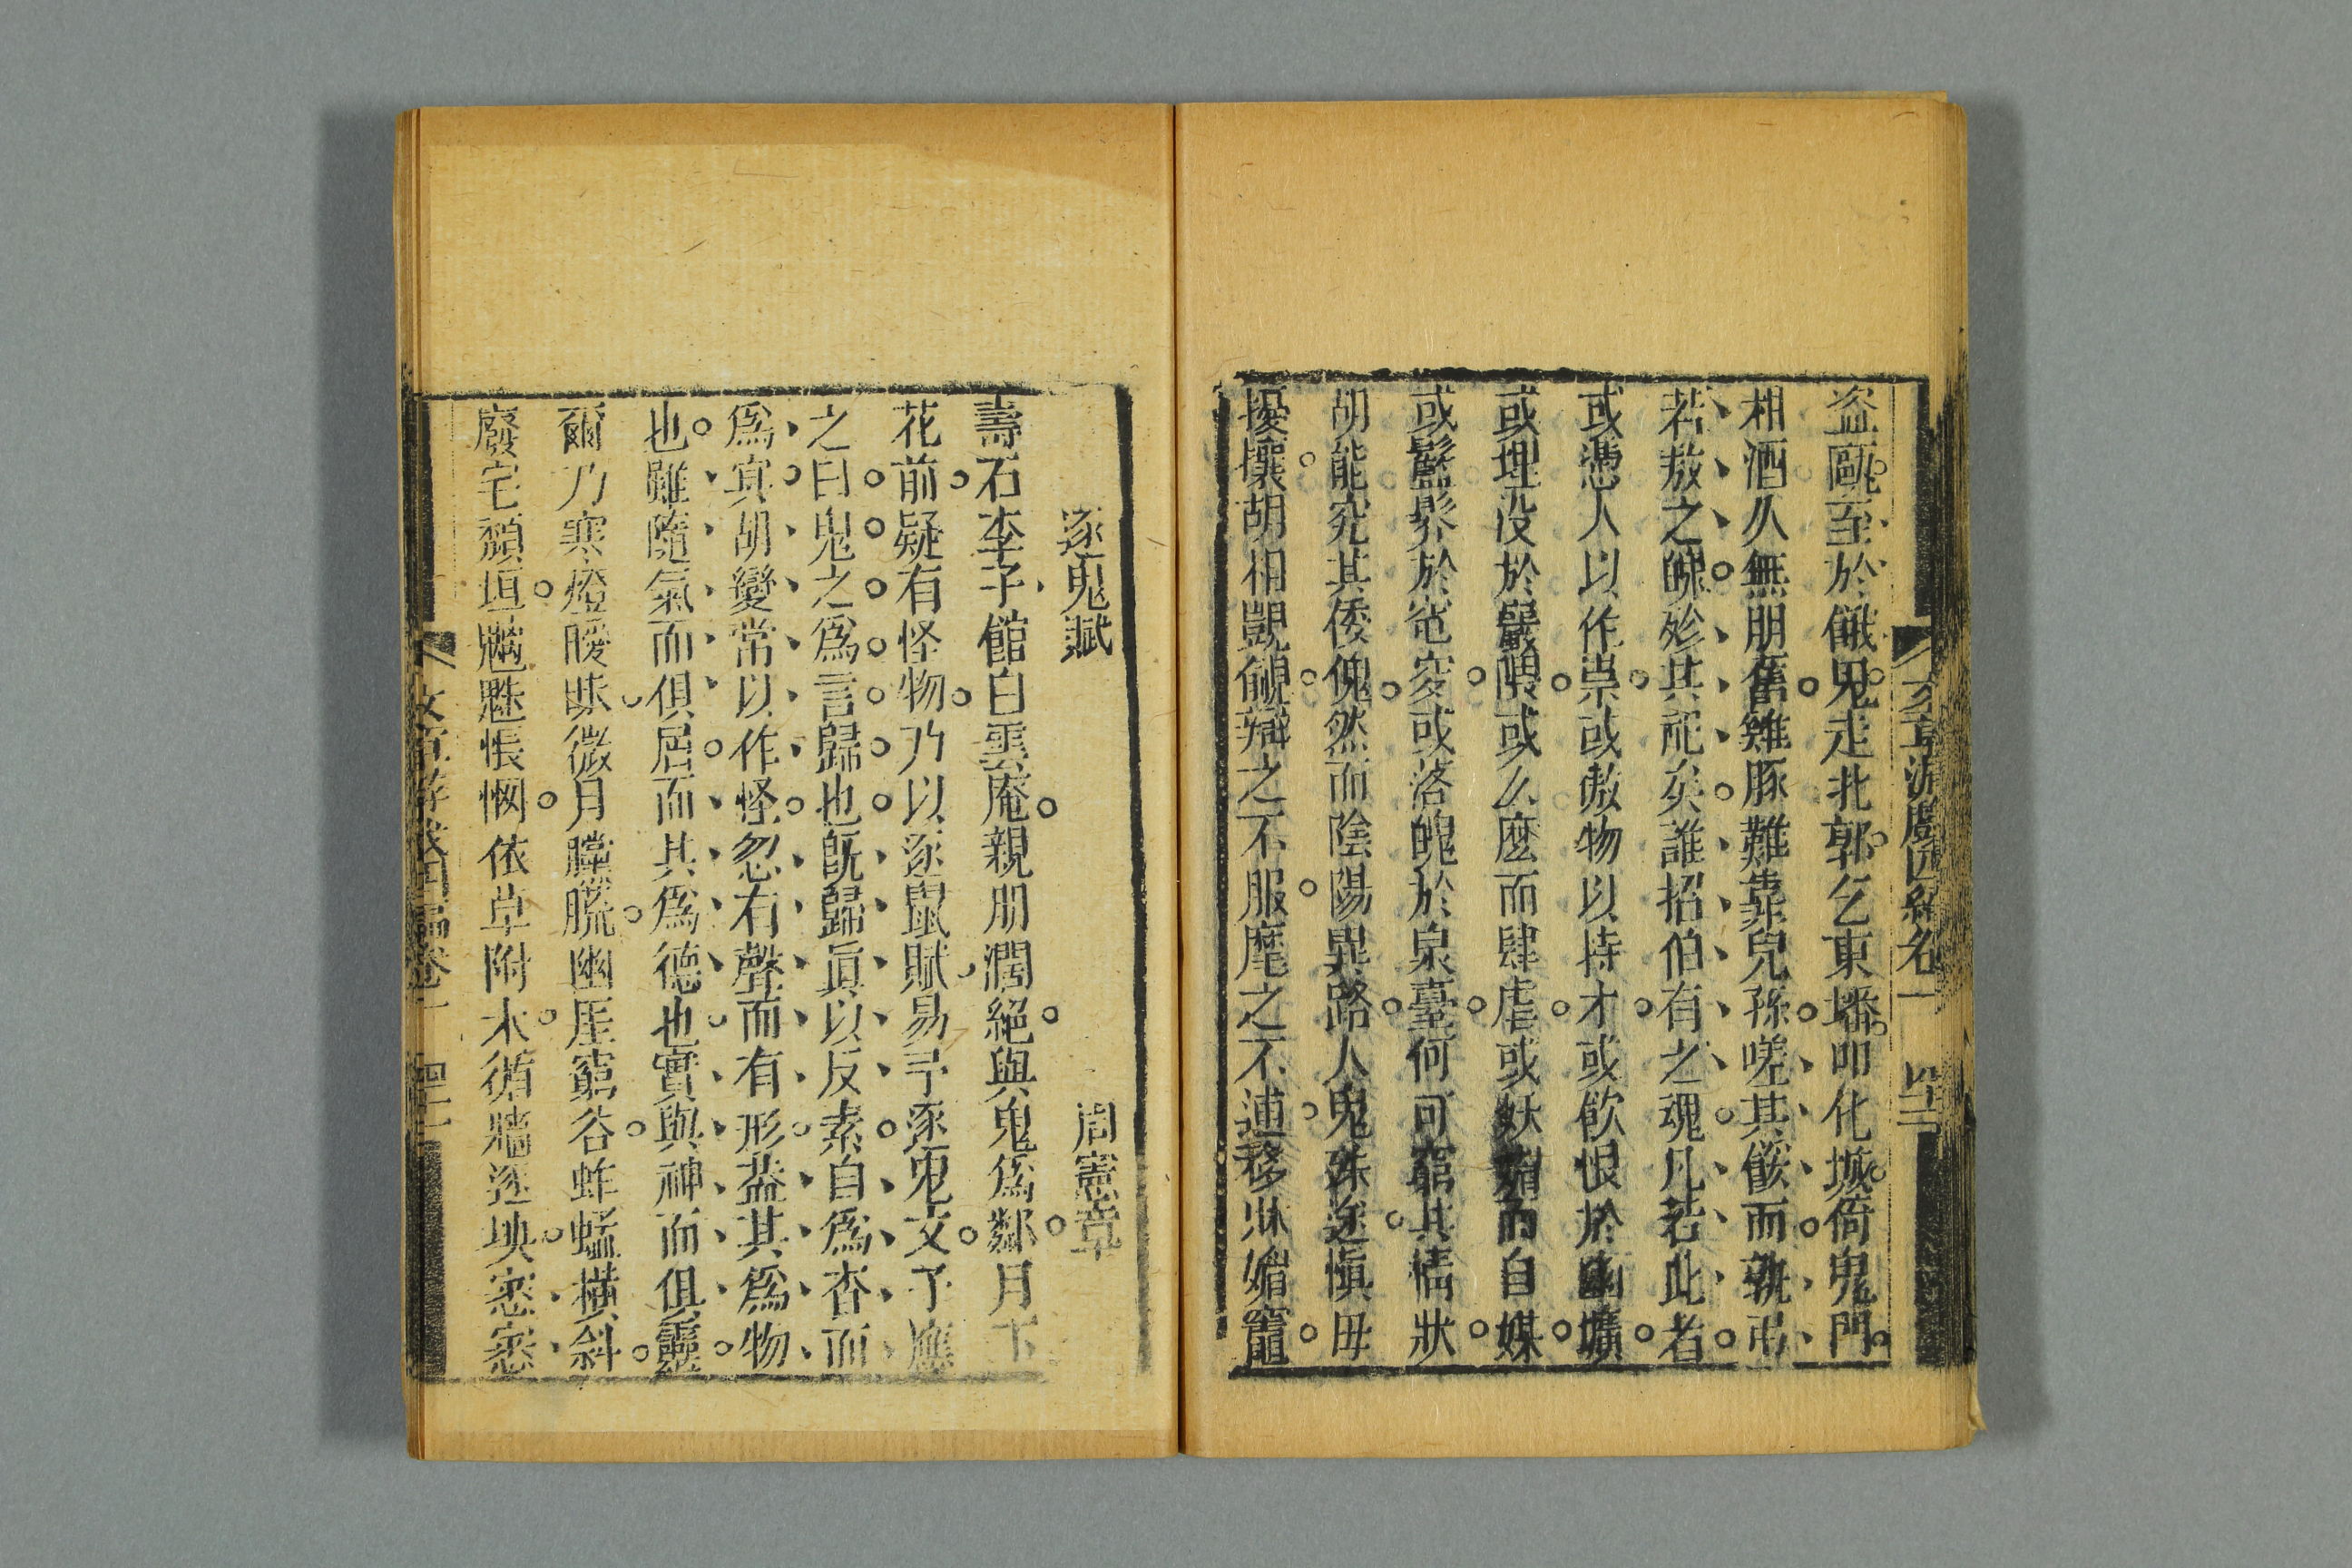 盜甌至於餓鬼走北郭乞東墦叩化城倚鬼門
相酒久無朋舊雞豚難靠兒孫嗟其餒而孰弔
若敖之餽殄其祀矣誰招伯有之魂凡若此者
或憑人以作祟或傲物以持才或飲恨於幽壙
或埋没於巖隈或么麼而肆虐或妖媚而自媒
或髽髹於窀穸或落魄於泉臺何可窮其情狀
胡能究其倭傀然而陰陽異路人鬼殊途愼毋
擾攘胡相覬覦辯之不服麾之不逋移牀媚竈
文章游戲四編卷一
逐鬼賦
周憲章
壽石李子館白雲庵親朋濶絕與鬼爲鄰月下
花前疑有怪物乃以逐鼠賦易予逐鬼文予應
之曰鬼之爲言歸也旣歸眞以反素自爲杳而
爲冥胡變常以作怪忽有聲而有形葢其爲物
也雖隨氣而俱屈而其爲德也實與神而俱靈
爾乃寒燈曖昧微月朦朧幽厓窮谷蚱蜢橫斜
廢宅頹垣魍魎悵惘依草附木循牆逐塊窸窸
文章游戲四編卷一